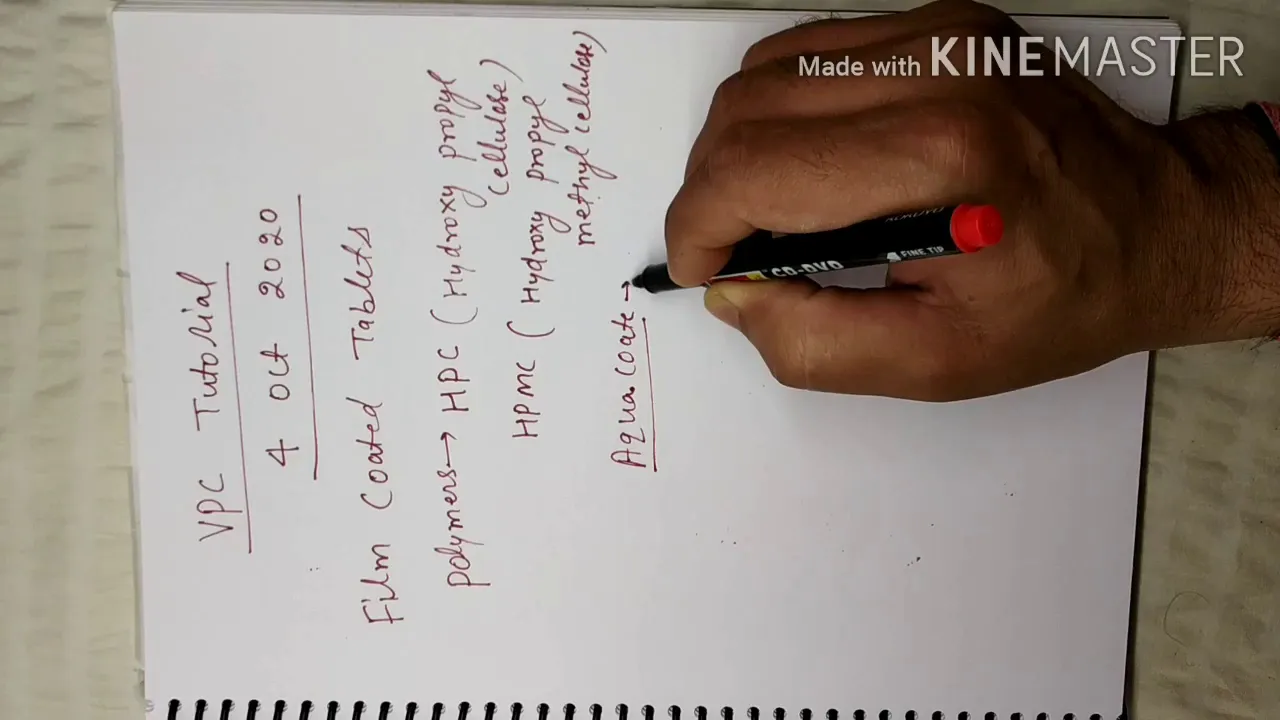 VPC Tutorial
4 Oct 2020
Film Coated Tablets
polymers → HPC (Hydroxy propyl
cellulose)
HPMC (Hydroxy propyl
methyl cellulose)
Aqua. Coate →
Made with KINEMASTER
CD-DVD
FINE TIP